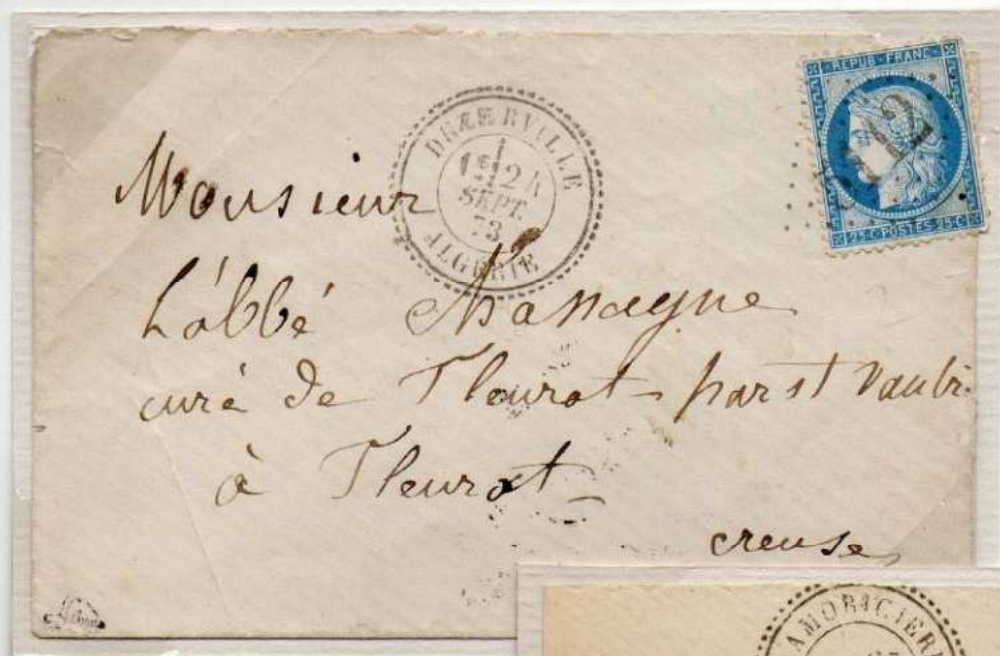 REPUB · FRANC ·
25 · C · POSTES · 25 · C
DRÆERVILLE
1E
24
SEPT.
73
ALGERIE
Monsieur
L'abbé
curé de Fleurat - par st Vaubr.
à Fleurat -
creuse
AMORICIER